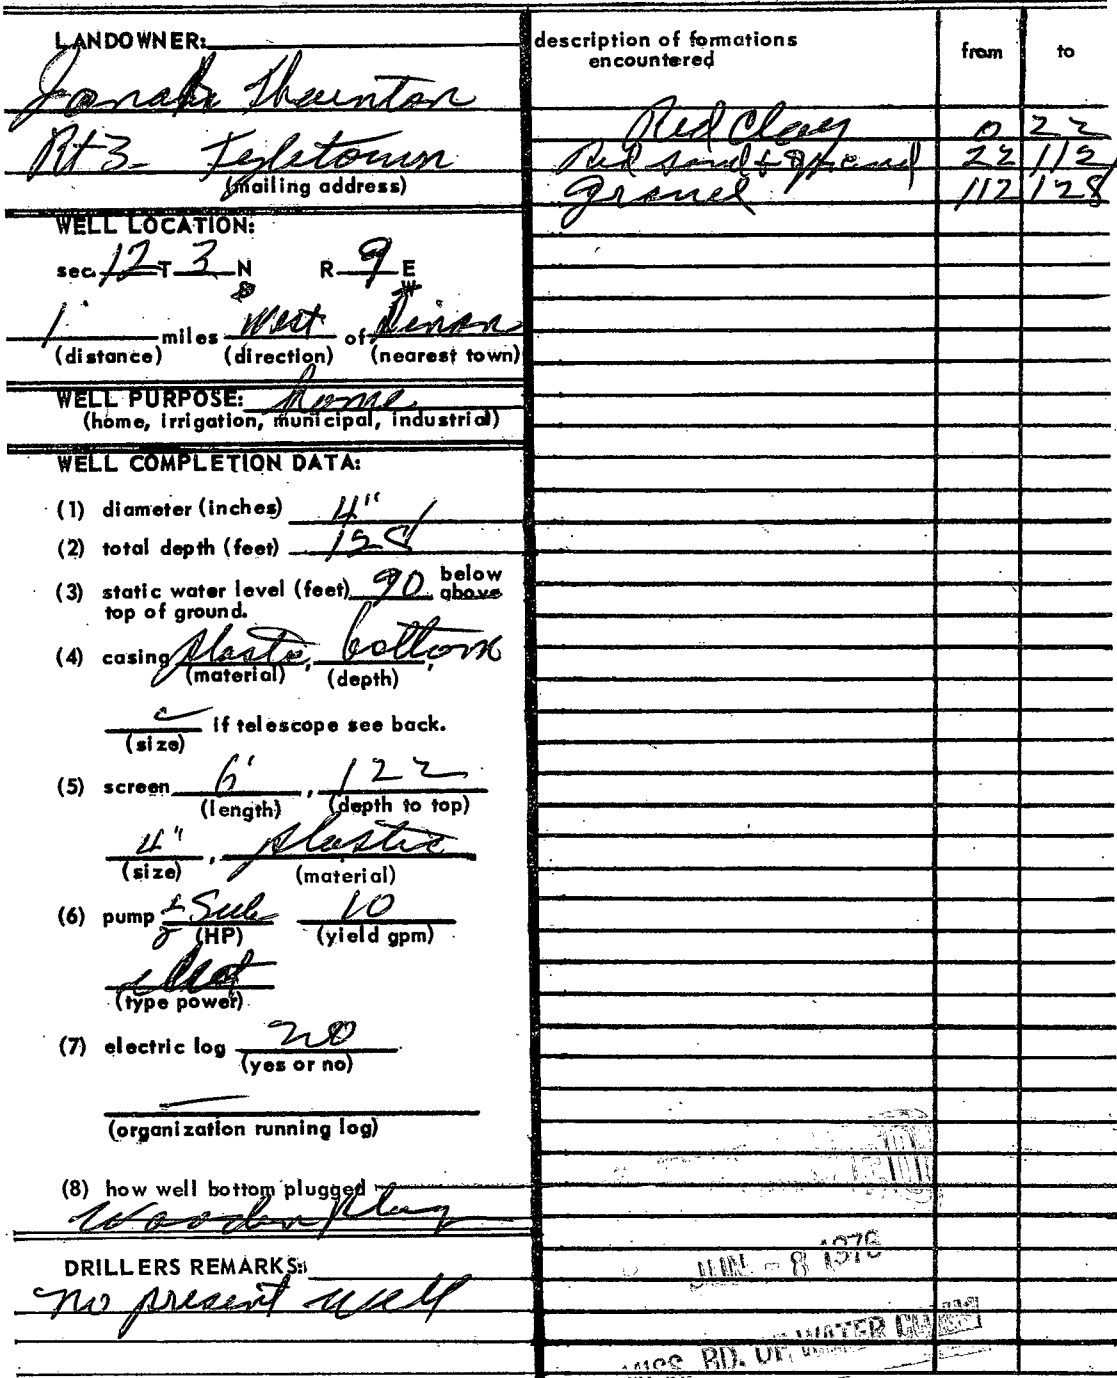 LANDOWNER:
Thornton
Rt 3- Tyletown
(mailing address)
WELL LOCATION:
sec. 12 T 3 N R 9 E
1 miles West of
(distance) (direction) (nearest town)
WELL PURPOSE: home
(home, irrigation, municipal, industrial)
WELL COMPLETION DATA:
(1) diameter (inches) 4"
(2) total depth (feet) 128
(3) static water level (feet) 90 below above
top of ground.
(4) casing plastic, bottom,
(material) (depth)
if telescope see back.
(size)
(5) screen 6', 122
(length) (depth to top)
4", plastic
(size) (material)
(6) pump 1/2 Sub 10
(HP) (yield gpm)
(type power)
(7) electric log no
(yes or no)
(organization running log)
(8) how well bottom plugged
Wooden Plug
DRILLERS REMARKS:
no present well
description of formations from to
encountered
Red Clay 0 22
Red sand & gravel 22 112
gravel 112 128
JUN - 8 1976
MISS. BD. OF WATER COMM